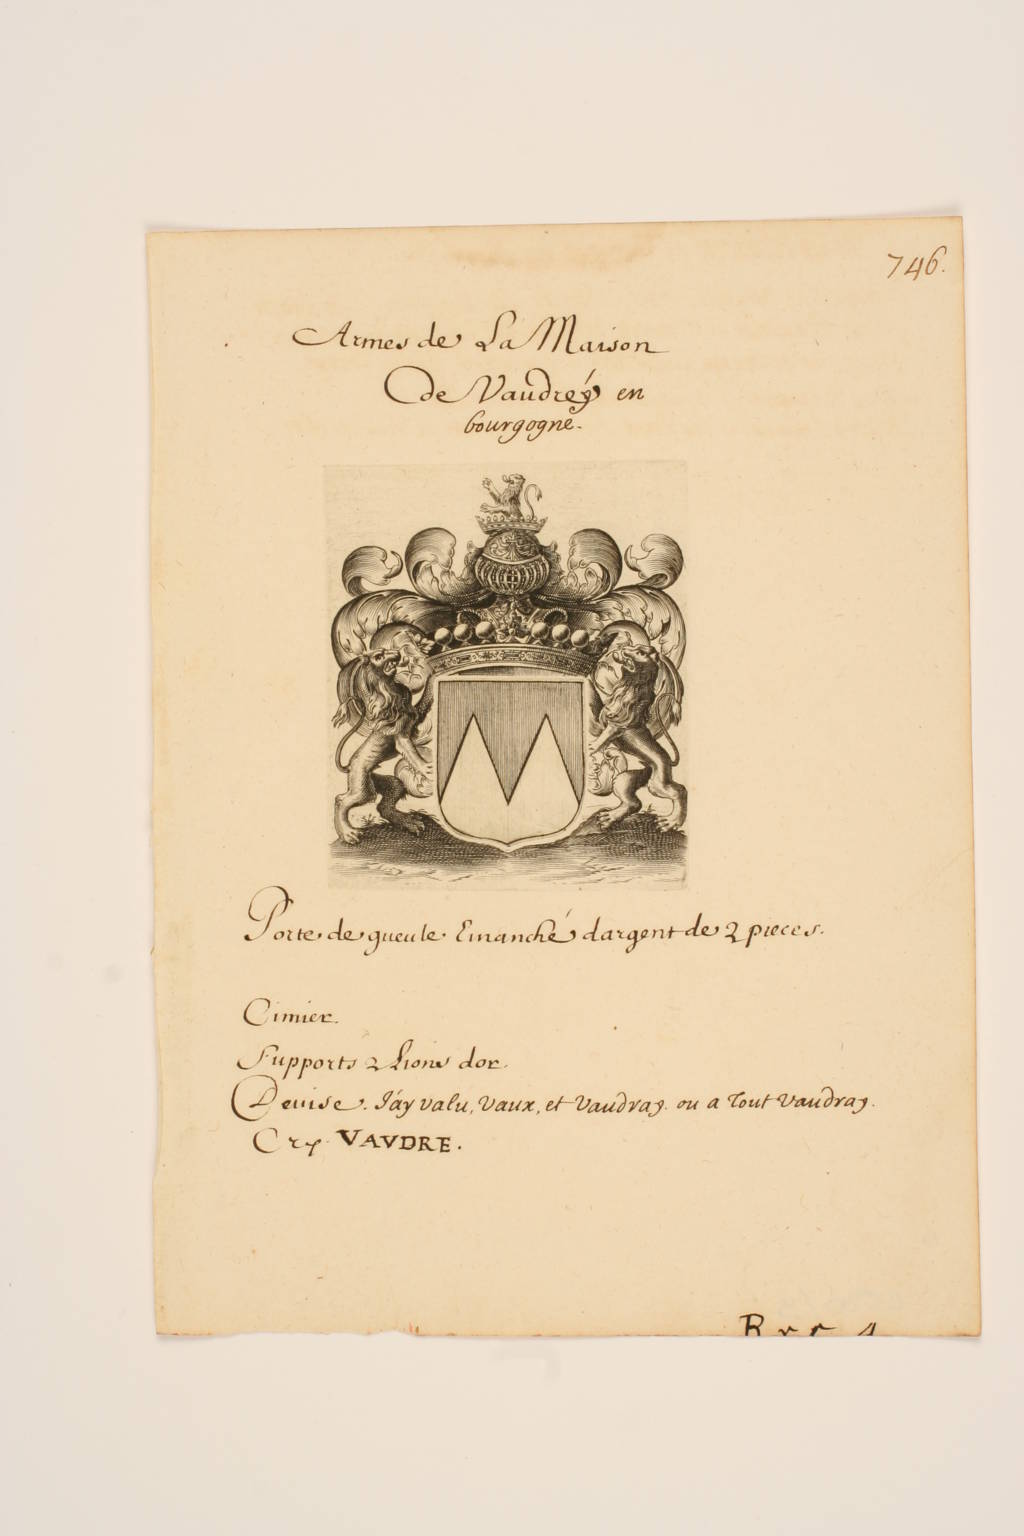 746.
Armes de La Maison
De Vaudréy en
bourgogne.
Porte de gueule Emanché dargent de 2 pieces.
Cimier.
Supports 2 Lions dor.
Deuise. J'ay valu, vaux, et vaudray. ou a Tout vaudray.
Cry VAVDRE.